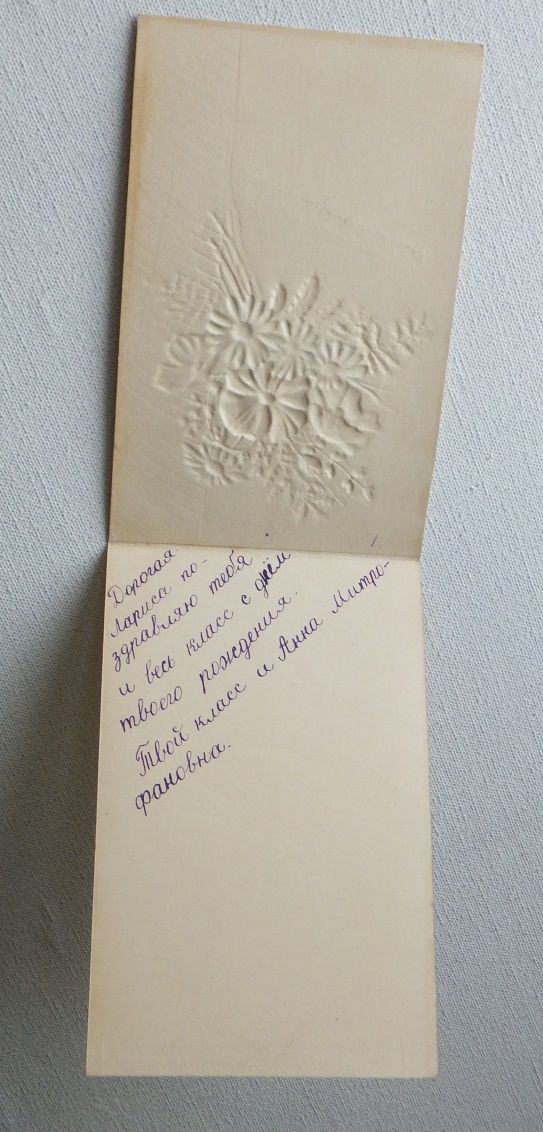 Дорогая
Лариса по-
здравляю тебя
и весь класс с днём
твоего рождения.
Твой класс и Анна Митро-
фановна.